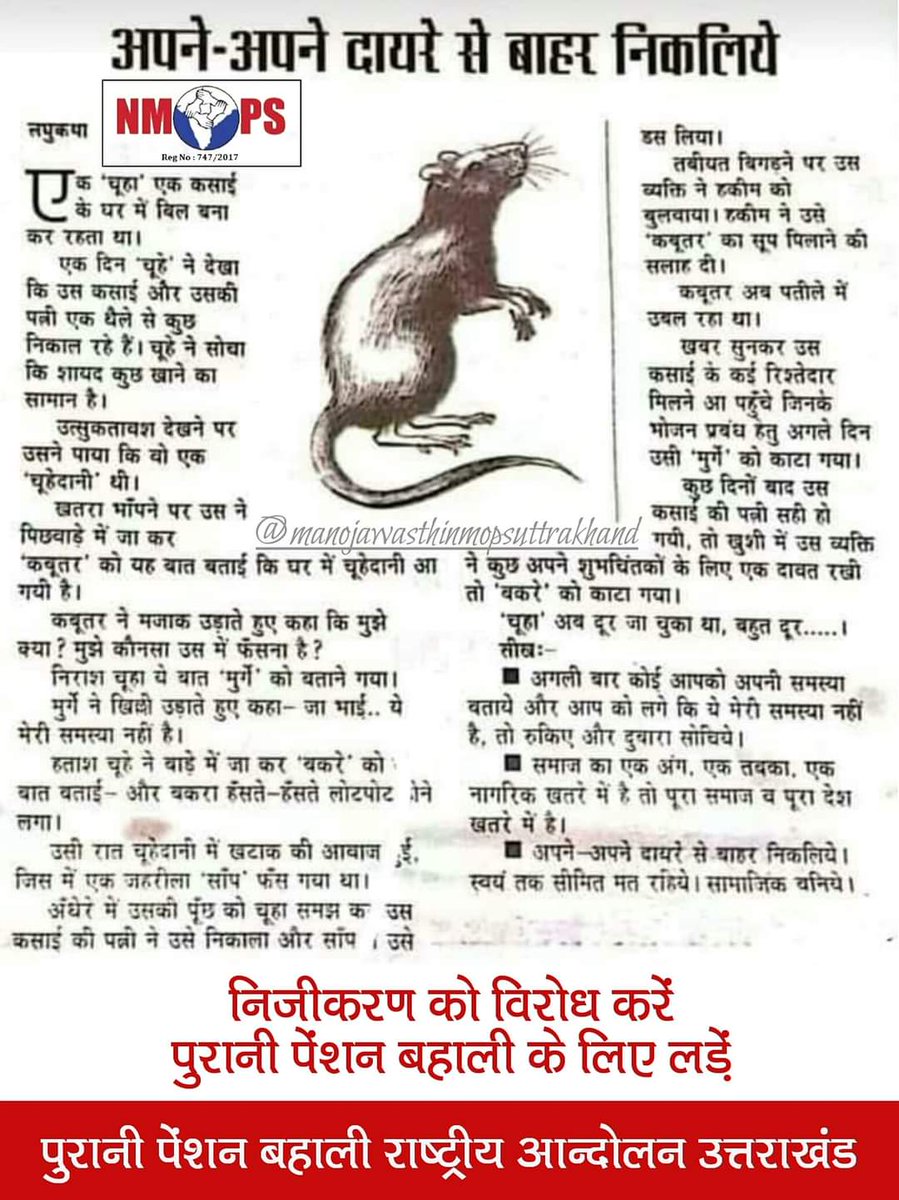 अपने-अपने दायरे से बाहर निकलिये
NM PS
Reg No : 747/2017
लघुकथा
एक 'चूहा' एक कसाई
के घर में बिल बना
कर रहता था।
एक दिन 'चूहे' ने देखा
कि उस कसाई और उसकी
पत्नी एक थैले से कुछ
निकाल रहे हैं। चूहे ने सोचा
कि शायद कुछ खाने का
सामान है।
उत्सुकतावश देखने पर
उसने पाया कि वो एक
'चूहेदानी' थी।
खतरा भाँपने पर उस ने
पिछवाड़े में जा कर
'कबूतर' को यह बात बताई कि घर में चूहेदानी आ
गयी है।
कबूतर ने मजाक उड़ाते हुए कहा कि मुझे
क्या? मुझे कौनसा उस में फँसना है?
निराश चूहा ये बात 'मुर्गे' को बताने गया।
मुर्गे ने खिल्ली उड़ाते हुए कहा- जा भाई.. ये
मेरी समस्या नहीं है।
हताश चूहे ने बाड़े में जा कर 'बकरे' को
बात बताई- और बकरा हँसते-हँसते लोटपोट ोने
लगा।
उसी रात चूहेदानी में खटाक की आवाज ुई,
जिस में एक जहरीला 'साँप' फँस गया था।
अँधेरे में उसकी पूँछ को चूहा समझ क उस
कसाई की पत्नी ने उसे निकाला और साँप । उसे
डस लिया।
तबीयत बिगड़ने पर उस
व्यक्ति ने हकीम को
बुलवाया। हकीम ने उसे
'कबूतर' का सूप पिलाने की
सलाह दी।
कबूतर अब पतीले में
उबल रहा था।
खबर सुनकर उस
कसाई के कई रिश्तेदार
मिलने आ पहुँचे जिनके
भोजन प्रबंध हेतु अगले दिन
उसी 'मुर्गे' को काटा गया।
कुछ दिनों बाद उस
कसाई की पत्नी सही हो
गयी, तो खुशी में उस व्यक्ति
ने कुछ अपने शुभचिंतकों के लिए एक दावत रखी
तो 'बकरे' को काटा गया।
'चूहा' अब दूर जा चुका था, बहुत दूर.....।
सीखः-
■ अगली बार कोई आपको अपनी समस्या
बताये और आप को लगे कि ये मेरी समस्या नहीं
है, तो रुकिए और दुबारा सोचिये।
■ समाज का एक अंग, एक तबका, एक
नागरिक खतरे में है तो पूरा समाज व पूरा देश
खतरे में है।
■ अपने-अपने दायरे से बाहर निकलिये।
स्वयं तक सीमित मत रहिये। सामाजिक बनिये।
@manojawasthinmopsuttrakhand
निजीकरण को विरोध करें
पुरानी पेंशन बहाली के लिए लड़ें
पुरानी पेंशन बहाली राष्ट्रीय आन्दोलन उत्तराखंड